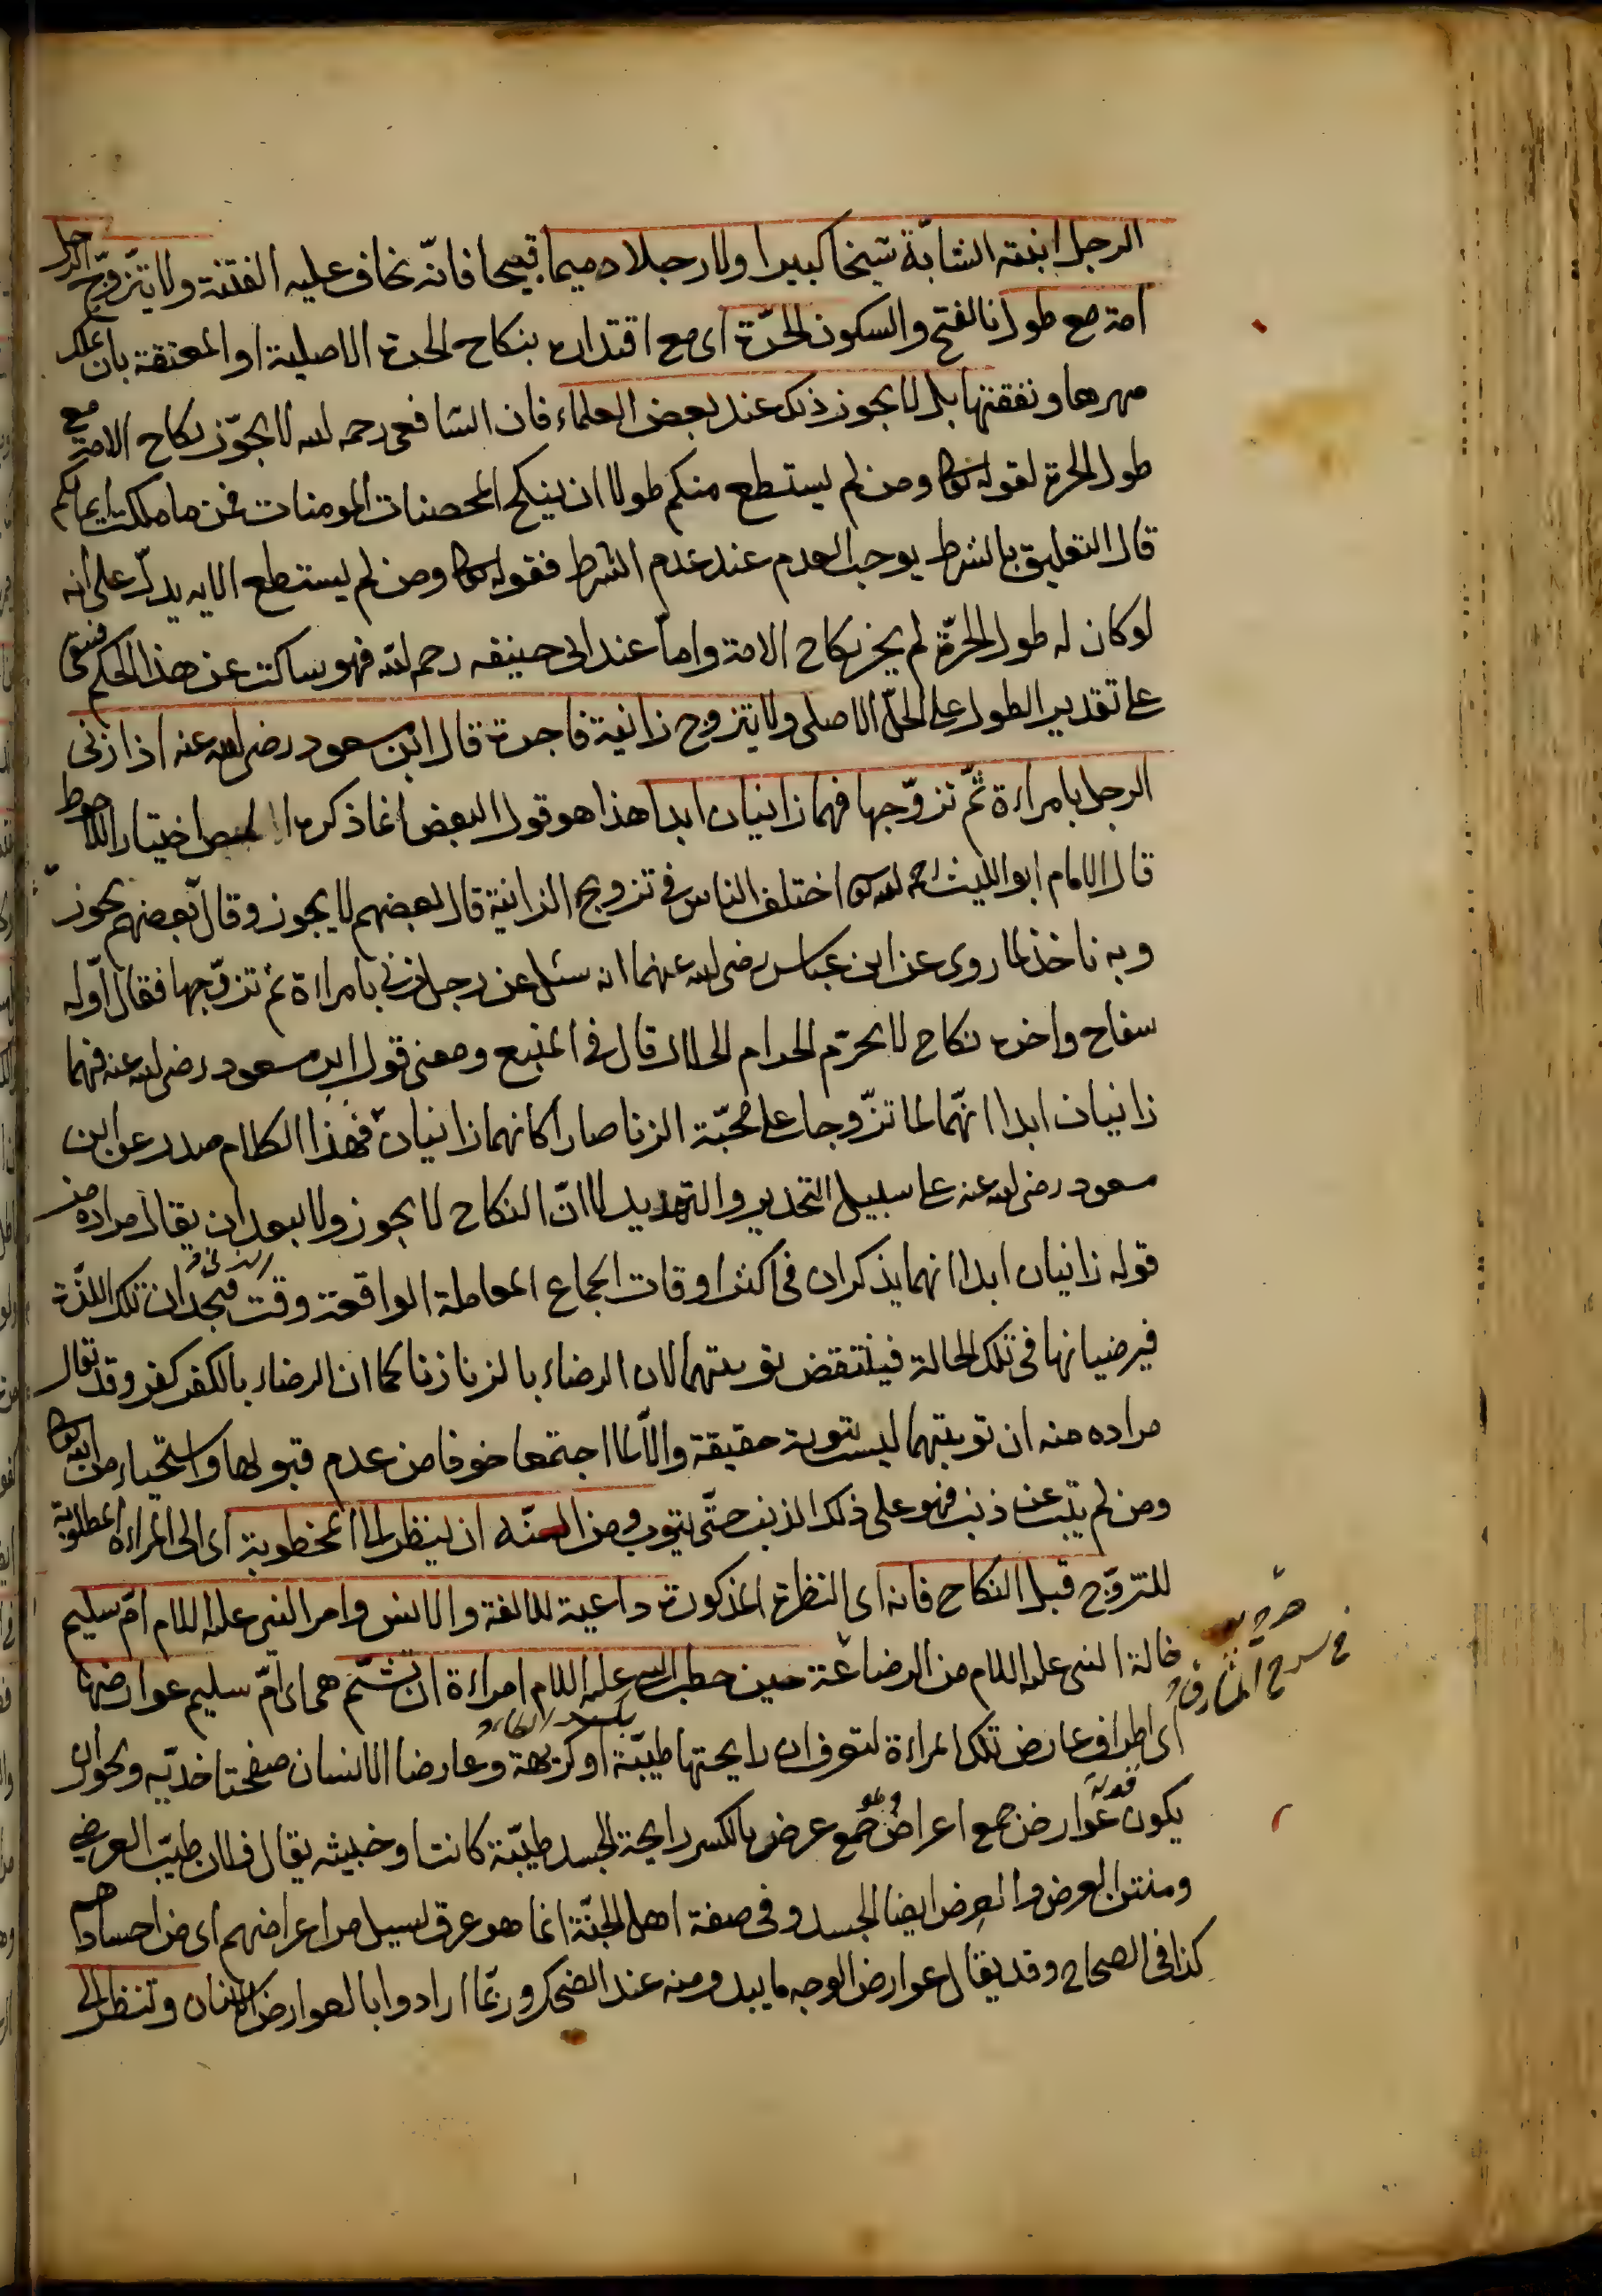 الرجل ابنته الشابّة شيخا كبيرا ولا رجلا دميما قبيحا فانّه يخاف عليه الفتنة ولا يتزوّج الرجل
امة مع طول بالفتح والسكون الحرّة اى مع اقتداره بنكاح الحرة الاصلية او المعتقة بان يملك
مهرها ونفقتها بل لا يجوز ذلك عند بعض العلماء فان الشافعى رحمه الله لا يجوّز نكاح الامة مع
طول الحرة لقوله تعالى ومن لم يستطع منكم طولا ان ينكح المحصنات المومنات فمن ما ملكت ايمانكم
قال التعليق بالشرط يوجب العدم عند عدم الشرط فقوله تعالى ومن لم يستطع الايه يدلّ على انه
لو كان له طول الحرّة لم يجز نكاح الامة وامّا عند ابى حنيفه رحمه الله فهو ساكت عن هذا الحكم فبقى
على تقدير الطول على الحلّ الاصلى ولا يتزوج زانية فاجرة قال ابن مسعود رضى الله عنه اذا زنى
الرجل بامراءة ثمّ تزوّجها فهما زانيان ابدا هذا هو قول البعض انما ذكره المص اختيارا للاحوط
قال الامام ابو الليث رحمه الله تعالى اختلف الناس فى تزوج الزانية قال بعضهم لا يجوز وقال بعضهم يجوز
وبه ناخذ لما روى عن ابن عباس رضى الله عنهما انه سئل عن رجل زنى بامراءة ثم تزوّجها فقال اوّله
سفاح واخره نكاح لا يحرّم الحرام الحلال قال فى المنبع ومعنى قول ابن مسعود رضى الله عنه فهما
زانيان ابدا انّهما لما تزّوجا على محبّة الزنا صارا كانهما زانيان فهذا الكلام صدر عن ابن
مسعود رضى الله عنه على سبيل التحذير والتهديد لا انّ النكاح لا يجوز ولا يبعد ان يقال مراده من
قوله زانيان ابدا انهما يذكران فى اكثر اوقات الجماع المعاملة الواقعة وقت الزنى فيجدان تلك اللذّة
فيرضيانها فى تلك الحالة فينتقض توبتهما لان الرضاء بالزنا زنا كما ان الرضاء بالكفر كفر وقد يقال
مراده منه ان توبتهما ليست بتوبة حقيقة والّا لما اجتمعا خوفا من عدم قبولها واستحياء من الله تعالى
ومن لم يتب عن ذنب فهو على ذلك الذنب حتّى يتوب ومن السنّه ان ينظر الى المخطوبة اى الى المراءة المطلوبة
للتزوّج قبل النكاح فانه اى النظرة المذكورة داعية للالفة والانس وامر النبى عليه السلام امّ سليم
خالة النبى عليه السلام من الرضاعة حين خطب النبى عليه السلام امراءة ان تشتّم هى اى امّ سليم عوارضها
اى اطراف عارض تلك المراءة لتعرف ان رايحتها طيبّة او كريهة وعارضا الانسان صفحتا خدّيه ويجوز ان
يكون قوله عوارض جمع اعراض وهو جمع عرض بالكسر رايحة الجسد طيبّة كانت او خبيثه يقال فلان طيّب العرض
ومنتن العرض والعرض ايضا الجسد وفى صفة اهل الجنّة انما هو عرق يسيل من اعراضهم اى من اجسادهم
كذا فى الصحاح وقد يقال عوارض الوجه ما يبدو منه عند الضحك وربّما ارادوا بالعوارض الاسنان وتنظر الى
فى شرح المشارق